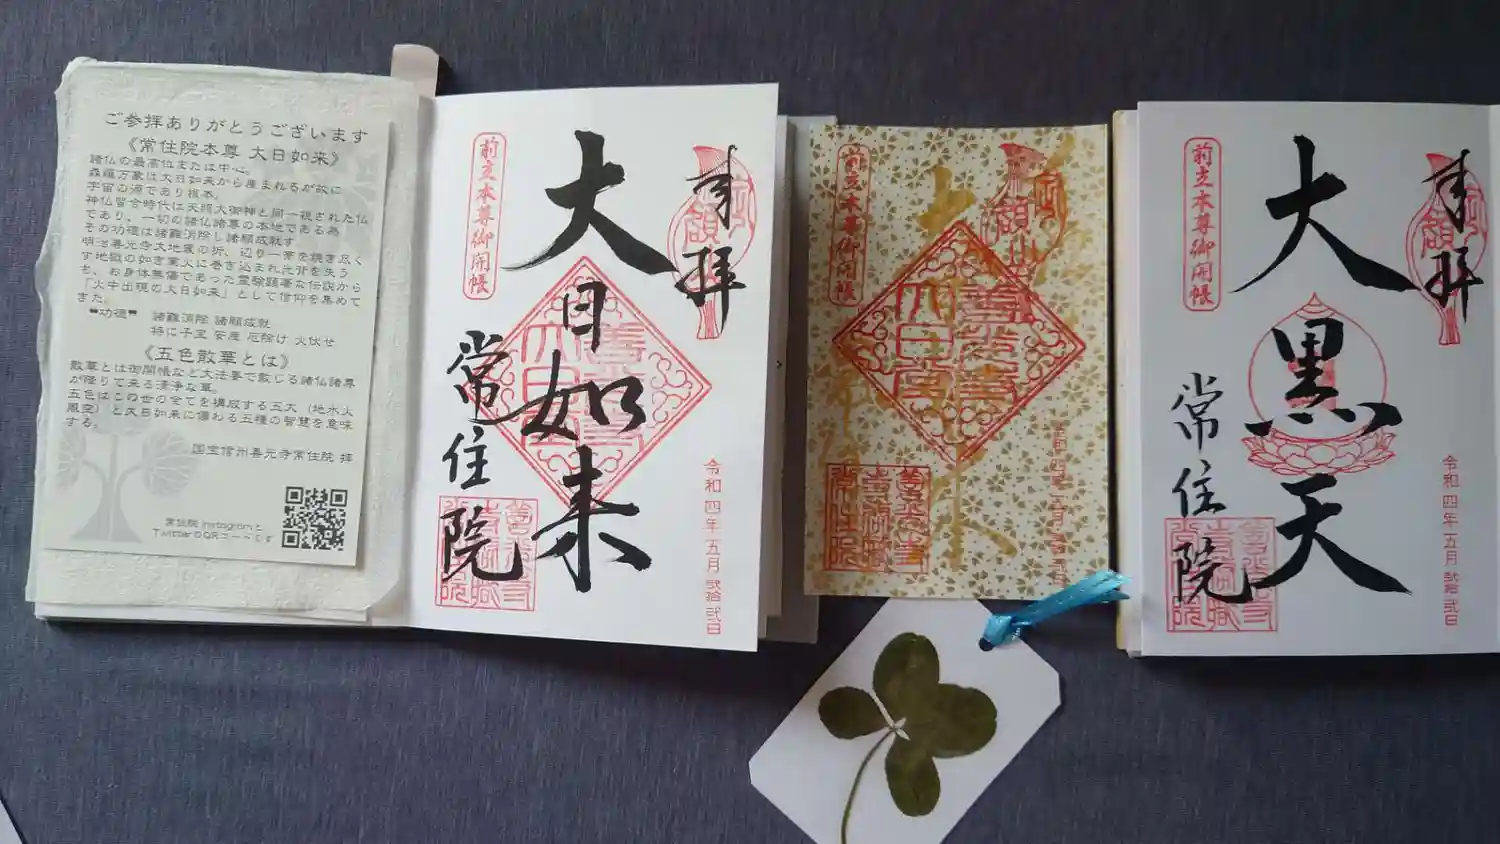 ご参拝ありがとうございます
《常住院本尊 大日如来》
諸仏の最高位または中心。
森羅万象は大日如来から産まれるが故に
宇宙の源であり根本。
神仏習合時代は天照大御神と同一視された仏
であり、一切の諸仏諸尊の本地である為
その功徳は諸難消除し諸願成就す
明治善光寺大地震の折、辺り一帯を焼き尽く
す地獄の如き業火に巻き込まれ光背を失う
も、お身体無傷であった霊験顕著な伝説から
「火中出現の大日如来」として信仰を集めて
きた。
❝功徳❞ 諸難消除 諸願成就
特に子宝 安産 厄除け 火伏せ
《五色散華とは》
散華とは御開帳など大法要で散じる諸仏諸尊
が降りて来る清浄な華。
五色はこの世の全てを構成する五大（地水火
風空）と大日如来に備わる五種の智慧を意味
する。
国宝信州善光寺常住院 拝
常住院 Instagramと
TwitterのQRコードです
奉拝
大日如来
前立本尊御開帳
常住院
令和四年五月弐拾弐日
前立本尊御開帳
奉拝
大黒天
前立本尊御開帳
常住院
令和四年五月弐拾弐日